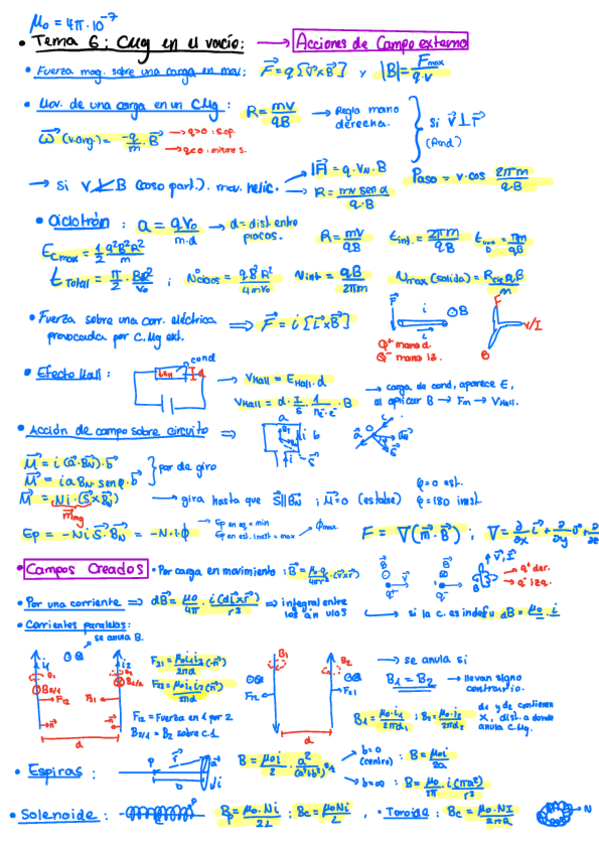 μ₀ = 4π·10⁻⁷
• Tema 6: CMg en el vacío: → Acciones de Campo externo
• Fuerza mag. sobre una carga en mov: F⃗ = q[v⃗×B⃗] y |B| = Fmax / q·v
• Mov. de una carga en un CMg: R = mv/qB → Regla mano derecha. } si v⃗⊥F⃗ (And)
ω⃗ (v.ang.) = -q/m · B⃗ → q>0: s.op. → q<0: mismo s.
→ si v⃗ ⊥̸ B (caso part.). mov. helic. → |F⃗| = q·V_N·B
→ R = mv senα / q·B
Paso = v·cos 2πm / q·B
• Ciclotrón: a = qV₀ / m·d → d = dist entre placas.
R = mv/qB t_int. = 2πm/qB = πm/qB
E_cmax = 1/2 q²B²R²/m
t_Total = π/2 · BR²/V₀ ; N°ciclos = qB²R²/4mV₀ ν_int = qB/2πm ν_max (salida) = B/m
• Fuerza sobre una corr. eléctrica provocada por C.Mg ext. ⇒ F⃗ = i[L⃗×B⃗]
F⃗ i ⊙B L⃗
Q⁺ mano d.
Q⁻ mano iz.
F V/I B
• Efecto Hall: cond
→ V_Hall = E_Hall · d
V_Hall = d · I/S · 1/n_e·e⁻ · B
→ carga de cond, aparece E, al aplicar B → Fm → V_Hall.
• Acción de campo sobre circuito ⇒ a b
M⃗ = i(a⃗·B⃗_N)·b⃗ } par de giro
M⃗ = i a B_N senφ·b⃗
M⃗ = Ni·(S⃗×B⃗_N) → gira hasta que S⃗∥B⃗_N ; M⃗=0 (estable)
m⃗_mg
φ=0 est.
φ=180 inest.
Ep = -Ni S⃗·B⃗_N = -N·i·ϕ → Ep en eq = min
Ep en est. inest = max → ϕmax
F = ∇(m⃗·B⃗) ; ∇ = ∂/∂x i⃗ + ∂/∂y
• Campos Creados • Por carga en movimiento: B⃗ = μ₀·q/4πr² (v⃗×r⃗)
B⃗ B⃗ q⁺ V⃗ q⁻ → q⁺ der.
→ q⁻ izq.
• Por una corriente ⇒ dB⃗ = μ₀/4π · i(dl⃗×r⃗)/r³ ⇒ integral entre los ángulos → si la c. es indef
• Corrientes paralelas:
se anula B.
F₂₁ = μ₀i₁i₂/2πd (-n⃗)
F₁₂ = μ₀i₁i₂/2πd (n⃗)
F₁₂ = Fuerza en 1 por 2
B₂/₁ = B₂ sobre c.1
i₁ i₂ B₂/₁ B₁/₂ F₁₂ F₂₁ d
B₁ B₂ F₁₂ F₂₁ d
→ se anula si
B₁ = B₂ → llevan signo contrario.
B₁ = μ₀·i₁/2πd₁ ; B₂ = μ₀·i₂/2πd₂
d₁ y d₂ contienen x, dist. a donde anula C.Mg.
• Espiras: P r⃗ a b i
B = μ₀i/2 · a²/(a²+b²)^3/2
b=0 (centro): B = μ₀i/2a
b=∞: B = μ₀/2π · i(πa²)/r³
• Solenoide: P Bp = μ₀·Ni/2L ; Bc = μ₀Ni/L , • Toroide: Bc = μ₀·NI/2πR N